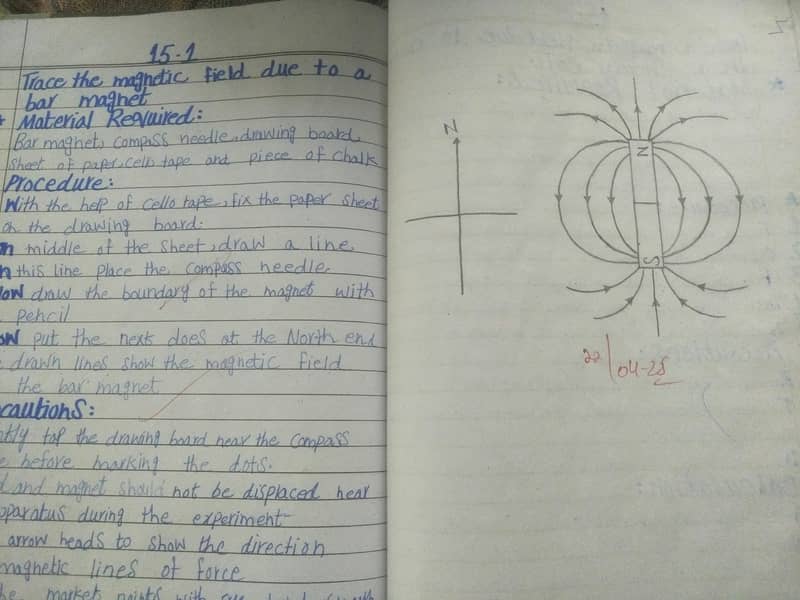 15-1
Trace the magnetic field due to a
bar magnet
* Material Required:
Bar magnet, compass needle, drawing board,
sheet of paper, cello tape and piece of chalk
Procedure:
With the help of cello tape, fix the paper sheet
on the drawing board.
middle of the sheet, draw a line.
this line place the compass needle.
draw the boundary of the magnet with
pencil
put the next does at the North end
drawn lines show the magnetic field
the bar magnet
cautions:
tap the drawing board near the compass
before marking the dots.
and magnet should not be displaced near
apparatus during the experiment
arrow heads to show the direction
magnetic lines of force
points with
N
N
S
22/04-25